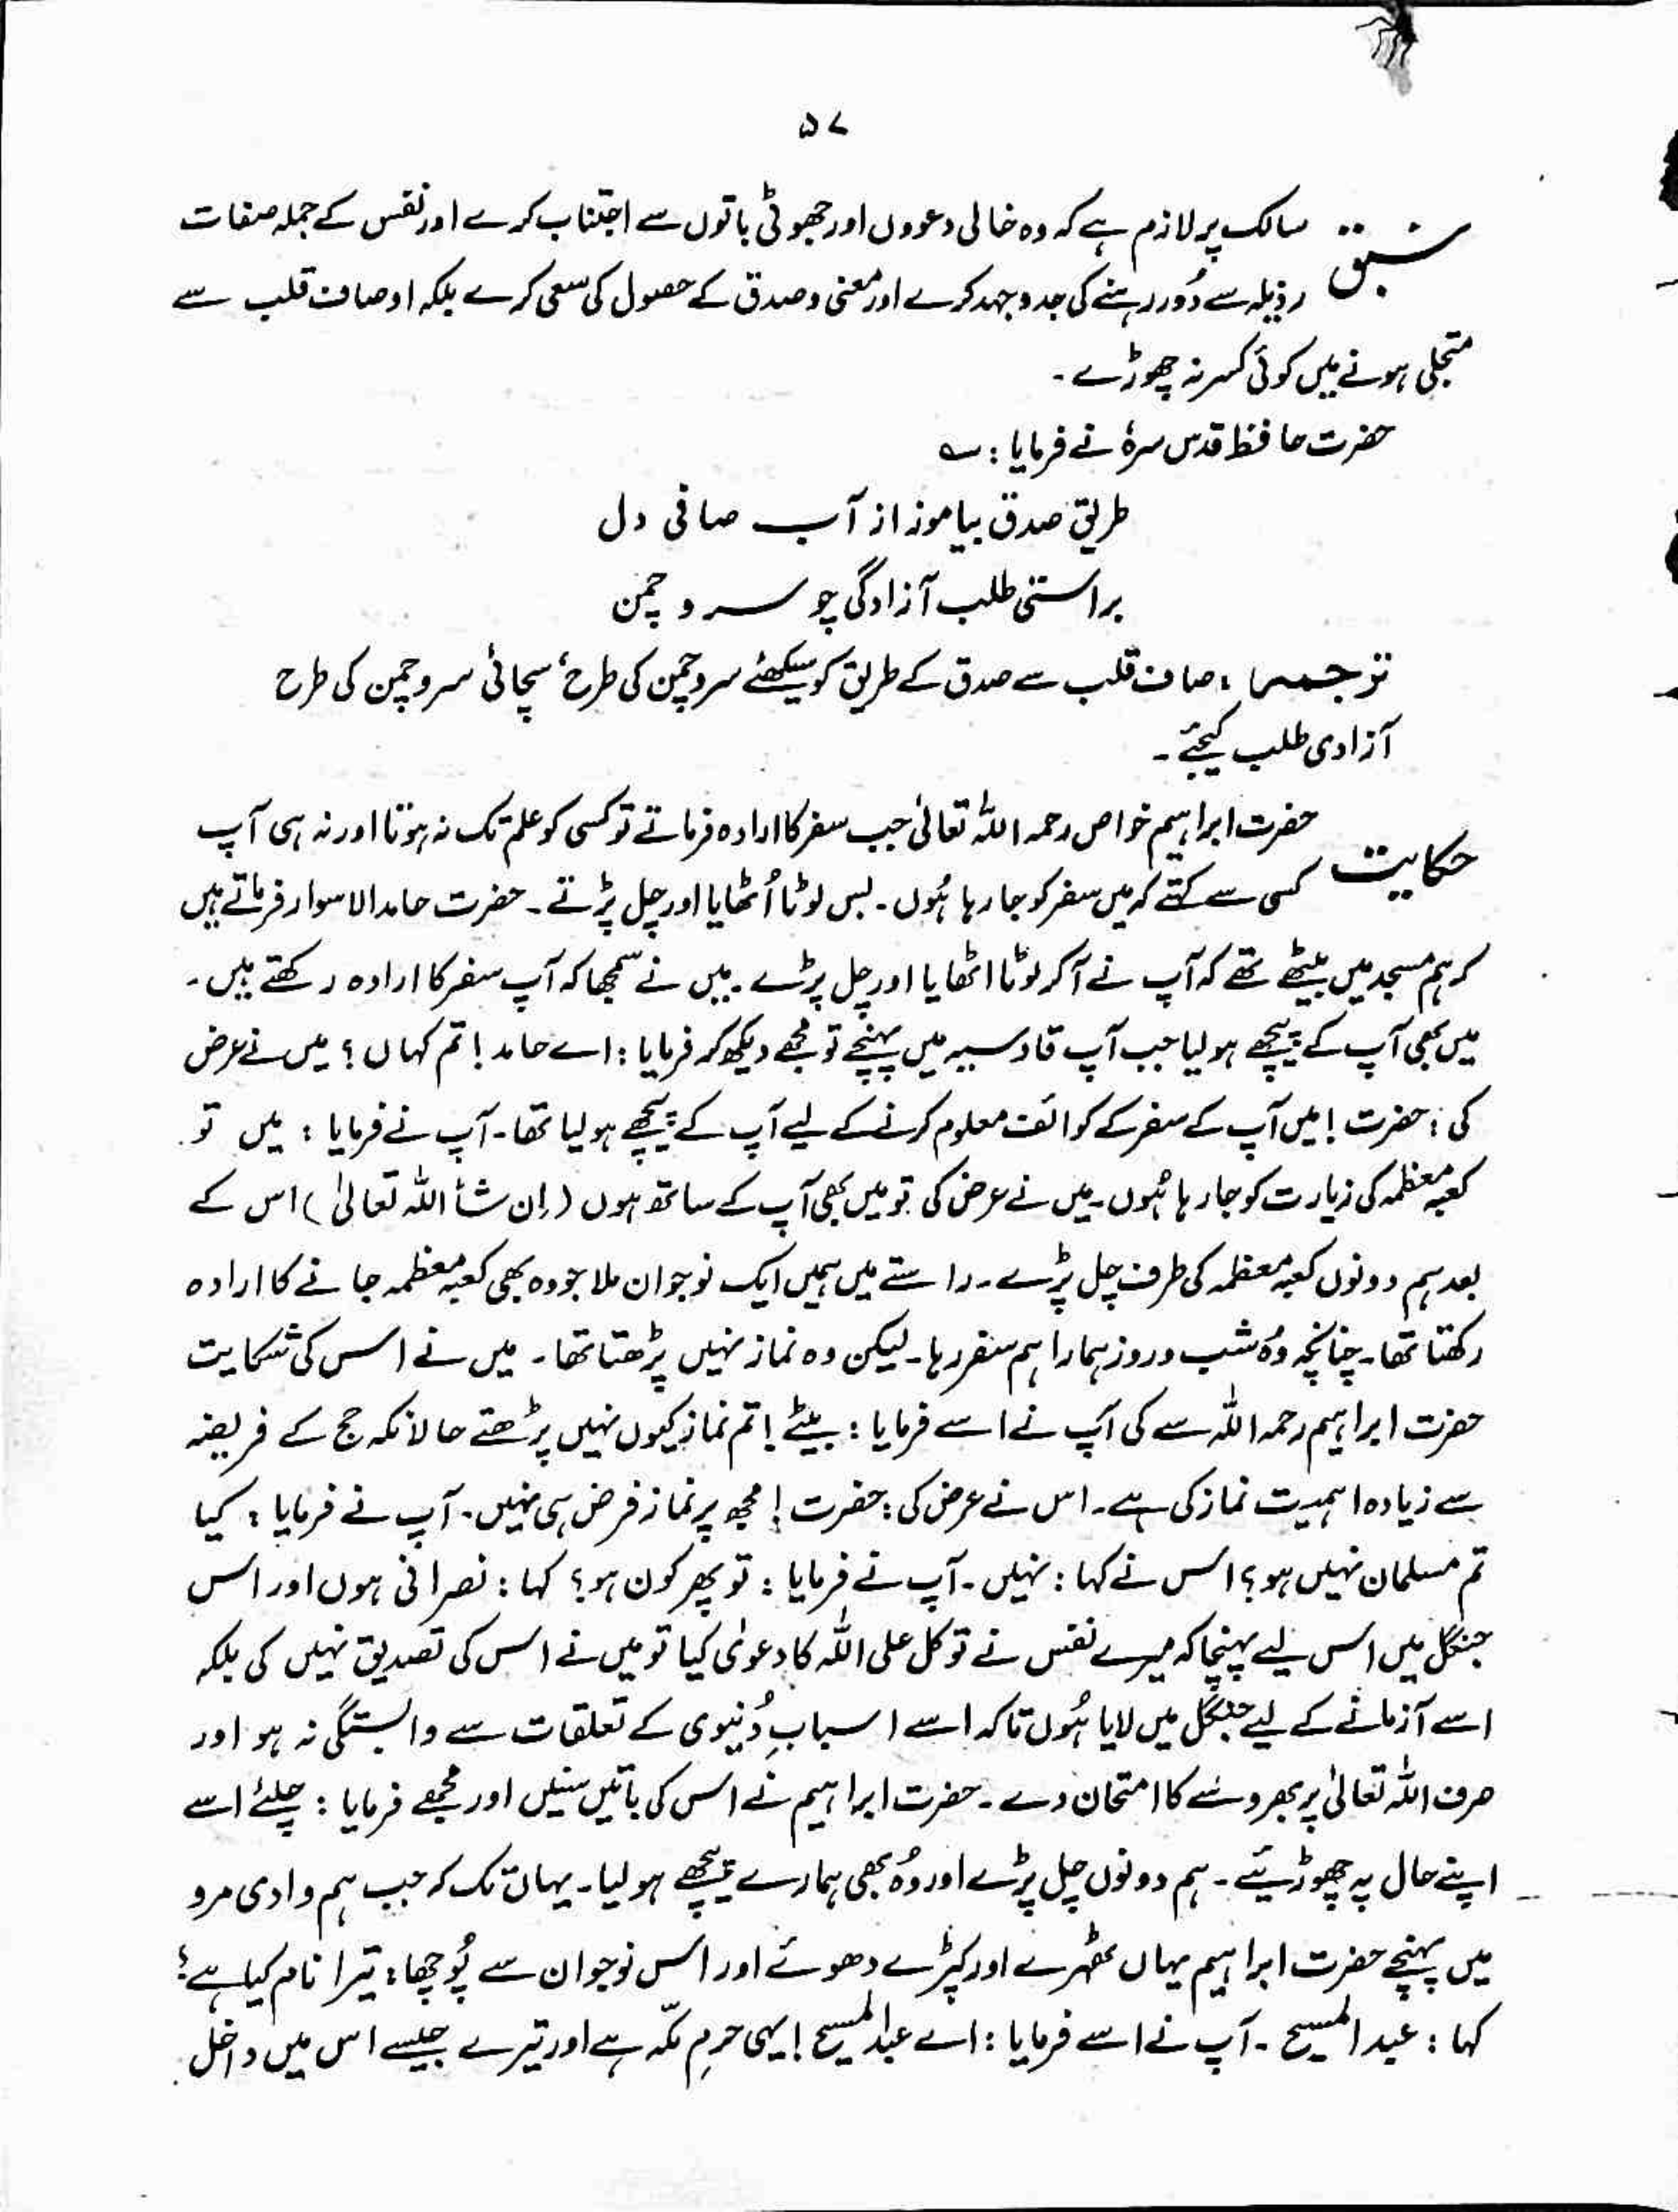 ۵۷
سبق سالک پر لازم ہے کہ وہ خالی دعووں اور جھوٹی باتوں سے اجتناب کرے اور نفس کے جملہ صفات
رذیلہ سے دُور رہنے کی جد و جہد کرے اور معنی و صدق کے حصول کی سعی کرے بلکہ اوصاف قلب سے
متجلی ہونے میں کوئی کسر نہ چھوڑے۔
حضرت حافظ قدس سرہٗ نے فرمایا : ؎
طریق صدق بیاموز از آب صافی دل
براستی طلب آزادگی چو سرو چمن
ترجمہ : صاف قلب سے صدق کے طریق کو سیکھئے سرو چمن کی طرح، سچائی سرو چمن کی طرح
آزادی طلب کیجئے۔
حکایت حضرت ابراہیم خواص رحمہ اللہ تعالیٰ جب سفر کا ارادہ فرماتے تو کسی کو علم تک نہ ہوتا اور نہ ہی آپ
کسی سے کہتے کہ میں سفر کو جا رہا ہُوں۔ بس لوٹا اُٹھایا اور چل پڑتے۔ حضرت حامد الاسوار فرماتے ہیں
کہ ہم مسجد میں بیٹھے تھے کہ آپ نے آکر لوٹا اٹھایا اور چل پڑے۔ میں نے سمجھا کہ آپ سفر کا ارادہ رکھتے ہیں۔
میں بھی آپ کے پیچھے ہو لیا جب آپ قادسیہ میں پہنچے تو مجھے دیکھ کر فرمایا : اے حامد ! تم کہاں ؟ میں نے عرض
کی : حضرت ! میں آپ کے سفر کے کوائف معلوم کرنے کے لیے آپ کے پیچھے ہو لیا تھا۔ آپ نے فرمایا : میں تو
کعبہ معظمہ کی زیارت کو جا رہا ہُوں۔ میں نے عرض کی تو میں بھی آپ کے ساتھ ہوں (اِن شأ اللہ تعالیٰ) اس کے
بعد ہم دونوں کعبہ معظمہ کی طرف چل پڑے۔ راستے میں ہمیں ایک نوجوان ملا جو وہ بھی کعبہ معظمہ جانے کا ارادہ
رکھتا تھا۔ چنانچہ وُہ شب و روز ہمارا ہم سفر رہا۔ لیکن وہ نماز نہیں پڑھتا تھا۔ میں نے اس کی شکایت
حضرت ابراہیم رحمہ اللہ سے کی آپ نے اسے فرمایا : بیٹے ! تم نماز کیوں نہیں پڑھتے حالانکہ حج کے فریضہ
سے زیادہ اہمیت نماز کی ہے۔ اس نے عرض کی : حضرت ! مجھ پر نماز فرض ہی نہیں۔ آپ نے فرمایا : کیا
تم مسلمان نہیں ہو؟ اس نے کہا : نہیں۔ آپ نے فرمایا : تو پھر کون ہو؟ کہا : نصرانی ہوں اور اس
جنگل میں اس لیے پہنچا کہ میرے نفس نے توکل علی اللہ کا دعوٰی کیا تو میں نے اس کی تصدیق نہیں کی بلکہ
اسے آزمانے کے لیے جنگل میں لایا ہُوں تاکہ اسے اسبابِ دُنیوی کے تعلقات سے وابستگی نہ ہو اور
صرف اللہ تعالیٰ پر بھروسے کا امتحان دے۔ حضرت ابراہیم نے اس کی باتیں سنیں اور مجھے فرمایا : چلیے اسے
اپنے حال پہ چھوڑیئے۔ ہم دونوں چل پڑے اور وُہ بھی ہمارے پیچھے ہو لیا۔ یہاں تک کہ جب ہم وادی مرو
میں پہنچے حضرت ابراہیم یہاں ٹھہرے اور کپڑے دھوئے اور اس نوجوان سے پُوچھا : تیرا نام کیا ہے؟
کہا : عبد المسیح۔ آپ نے اسے فرمایا : اے عبدالمسیح ! یہی حرمِ مکّہ ہے اور تیرے جیسے اس میں داخل